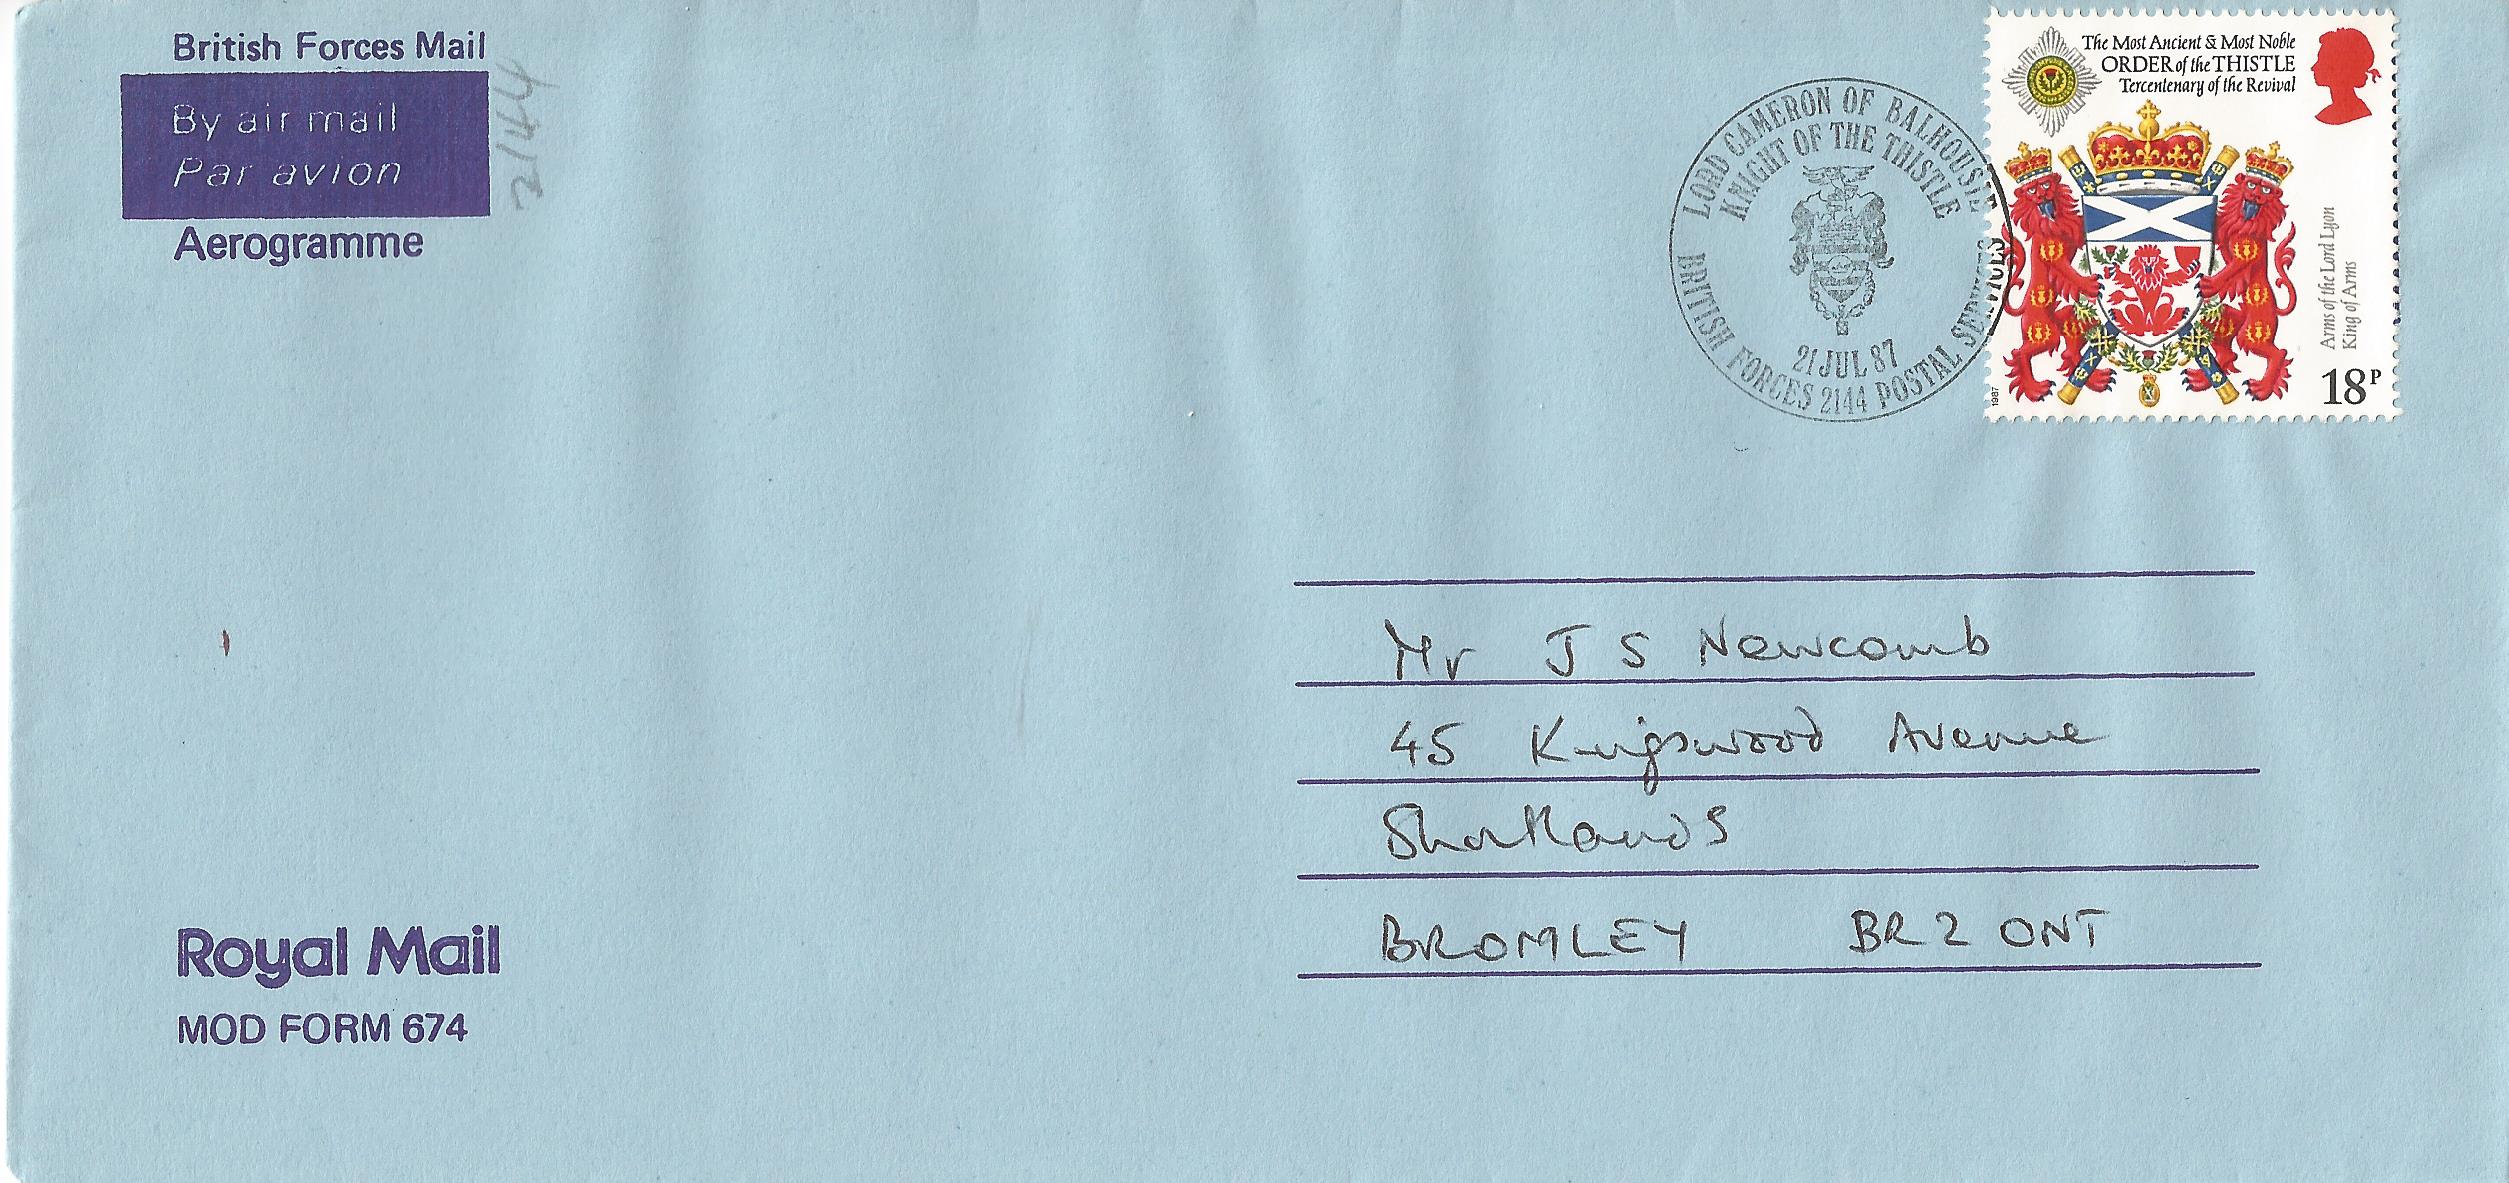 British Forces Mail
By air mail
Par avion
Aerogramme
2144
LORD CAMERON OF BALHOUSIE
KNIGHT OF THE THISTLE
21 JUL 87
BRITISH FORCES 2144 POSTAL SERVICES
The Most Ancient & Most Noble
ORDER of the THISTLE
Tercentenary of the Revival
Arms of the Lord Lyon
King of Arms
18P
1987
Mr J S Newcomb
45 Kingswood Avenue
Shortlands
BROMLEY BR2 0NT
Royal Mail
MOD FORM 674